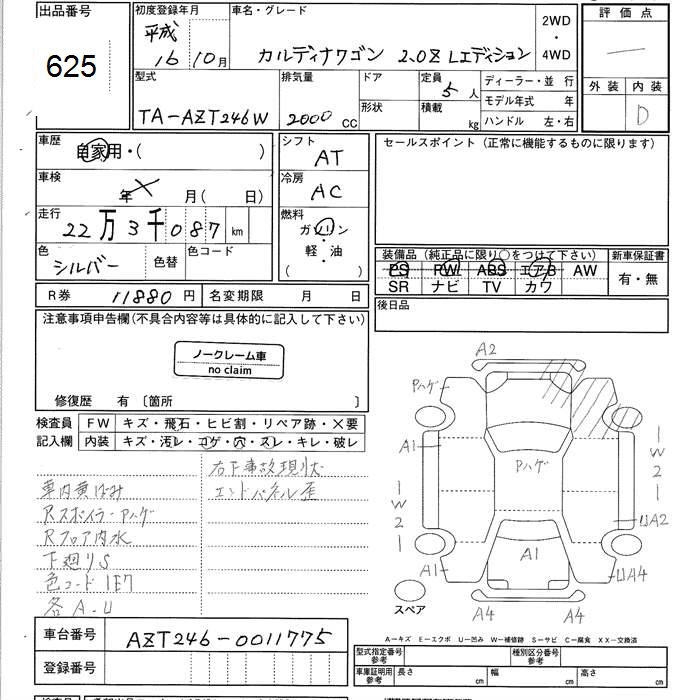 出品番号
625
初度登録年月
平成
16 10月
車名・グレード
カルディナワゴン 2.0Z Lエディション
2WD
・
4WD
評価点
—
外装 内装
D
型式
TA-AZT246W
排気量
2000 CC
ドア
形状
定員
5 人
積載
kg
ディーラー・並 行
モデル年式 年
ハンドル 左・右
車歴
自家用・( )
車検
年 × 月( 日)
走行
22万3千087 km
色
シルバー
色替
色コード
シフト
AT
冷房
AC
燃料
ガソリン
軽・油
( )
セールスポイント(正常に機能するものに限ります)
装備品(純正品に限り○をつけて下さい)
PS PW ABS エアB AW
SR ナビ TV カワ
新車保証書
有・無
R券 11880円
名変期限 月 日
後日品
注意事項申告欄(不具合内容等は具体的に記入して下さい)
ノークレーム車
no claim
修復歴 有 〔箇所 〕
検査員
記入欄
FW キズ・飛石・ヒビ割・リペア跡・×要
内装 キズ・汚レ・コゲ・穴・スレ・キレ・破レ
右下事故現状
エンドパネル歪
車内黄ばみ
Rスポイラーアハゲ
Rフロア内水
下廻りS
色コード1E7
各A.U
A2
Pハゲ
A1
Pハゲ
W2
W2
UA2
A1
A1
UA4
A4
A4
スペア
A-キズ E-エクボ U-凹み W-補修跡 S-サビ C-腐食 XX-交換済
車台番号
AZT246-0011775
登録番号
型式指定番号
参考
種別区分番号
参考
車庫証明用
参考
長さ cm 幅 cm 高さ cm